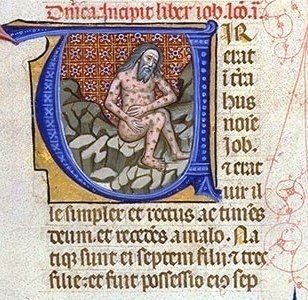 Dnica Incipit liber iob. lco. i.
VIR
erat
i tra
hus
noīe
Iob.
& erat
uir il
le simplex et rectus. ac timēs
deum. et recedēs a malo. Na
tiqȝ sunt ei septem filii & tres
filie: et fuit possessio eius sep